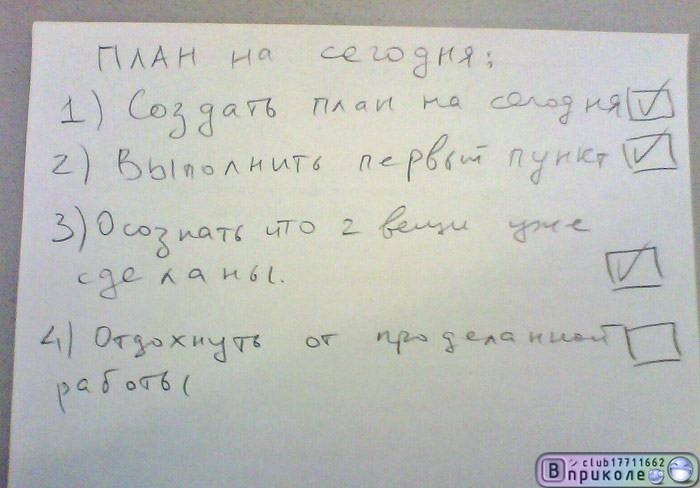 ПЛАН на сегодня:
1) Создать план на сегодня
2) Выполнить первый пункт
3) Осознать что 2 вещи уже
сделаны.
4) Отдохнуть от проделанной
работы
club17711662
Вприколе